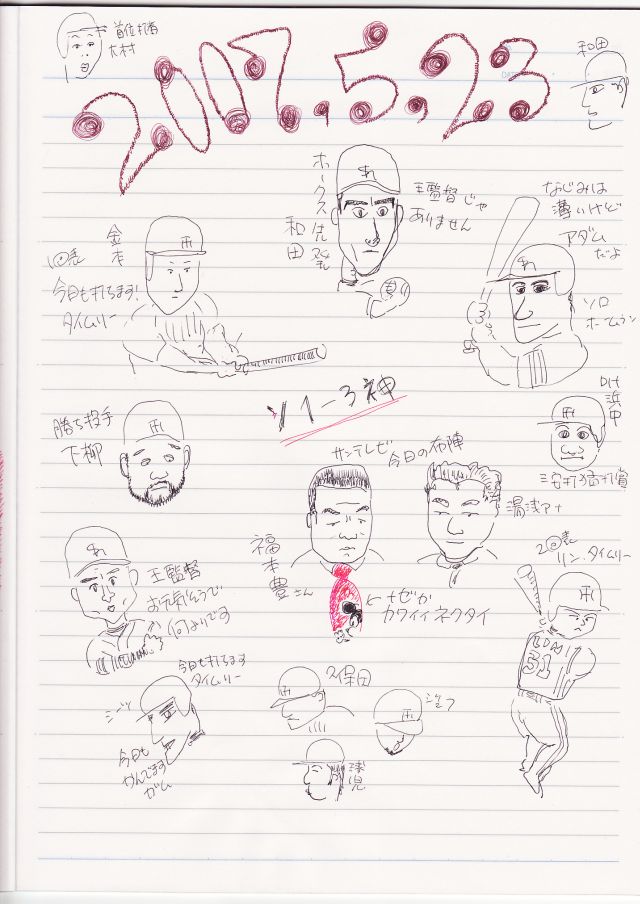 首位打者
大村
2007.5.23
和田
ホークス先発
和田
王監督じゃ
ありません
なじみは
薄いけど
アダム
だよ
ソロ
ホームラン
金本
1回表
今日も打ちます!
タイムリー
ソ1-3神
DH
浜中
三安打猛打賞
勝ち投手
下柳
サンテレビ
今日の布陣
福本豊さん
湯浅アナ
←なぜか
カワイイネクタイ
王監督
お元気そうで
何よりです
2回表
リン・タイムリー
31
今日も打ちます
タイムリー
シーツ
今日も
かんでます
ガム
久保田
ジェフ
球児